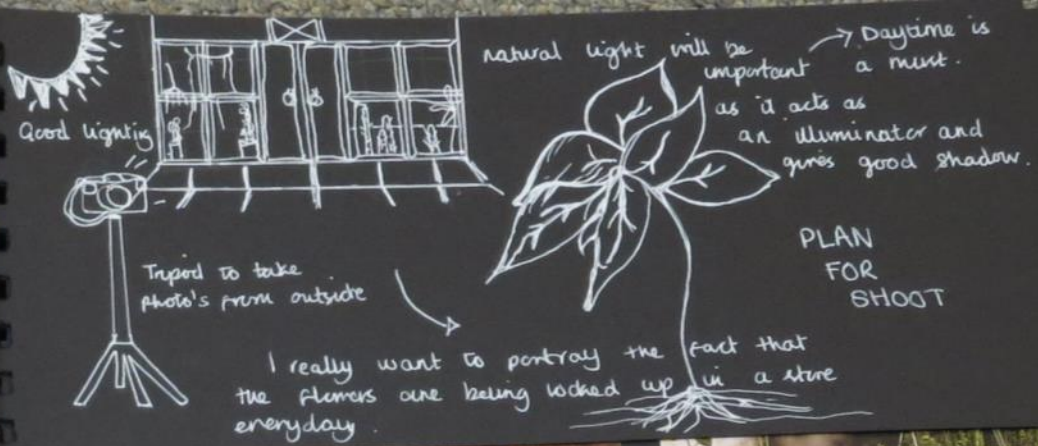 Good lighting
natural light will be
important
→ Daytime is
a must.
as it acts as
an illuminator and
gives good shadow.
PLAN
FOR
SHOOT
Tripod to take
photo's from outside
I really want to portray the fact that
the flowers are being locked up in a store
everyday.